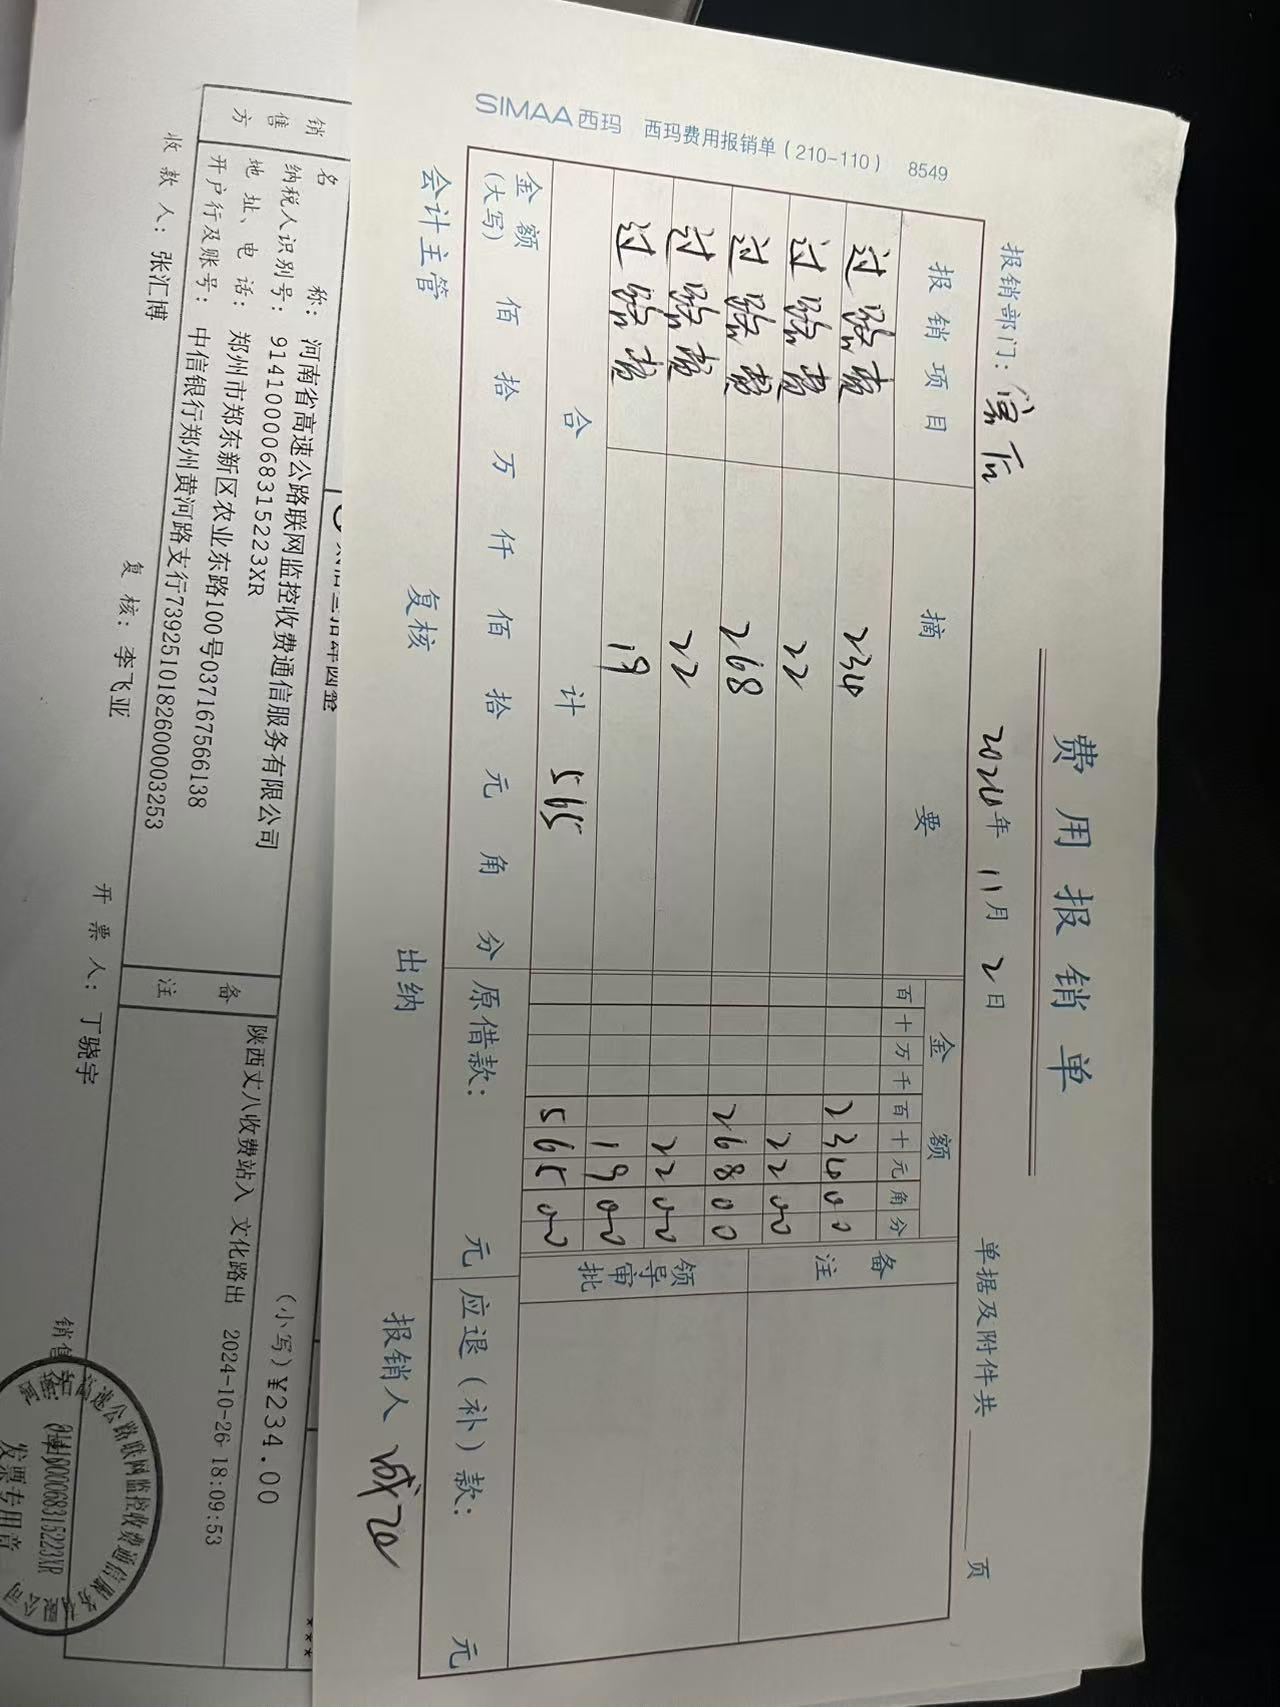 费用报销单
报销部门: 售后 2024年 11月 2日 单据及附件共 页
报销项目 摘要 金额 备注
百十万千百十元角分
过路费 234 23400
过路费 22 2200
过路费 268 26800
过路费 22 2200
过路费 19 1900
领导审批
合计 565 56500
金额(大写) 佰 拾 万 仟 佰 拾 元 角 分 原借款: 元 应退(补)款: 元
会计主管 复核 出纳 报销人
SIMAA西玛 西玛费用报销单(210-110) 8549
(小写)¥234.00
***
销售方
名 称: 河南省高速公路联网监控收费通信服务有限公司
纳税人识别号: 9141000068315223XR
地址、电话: 郑州市郑东新区农业东路100号037167566138
开户行及账号: 中信银行郑州黄河路支行7392510182600003253
备注
陕西丈八收费站入 文化路出 2024-10-26 18:09:53
收款人: 张汇博 复核: 李飞亚 开票人: 丁骁宇
发票专用章